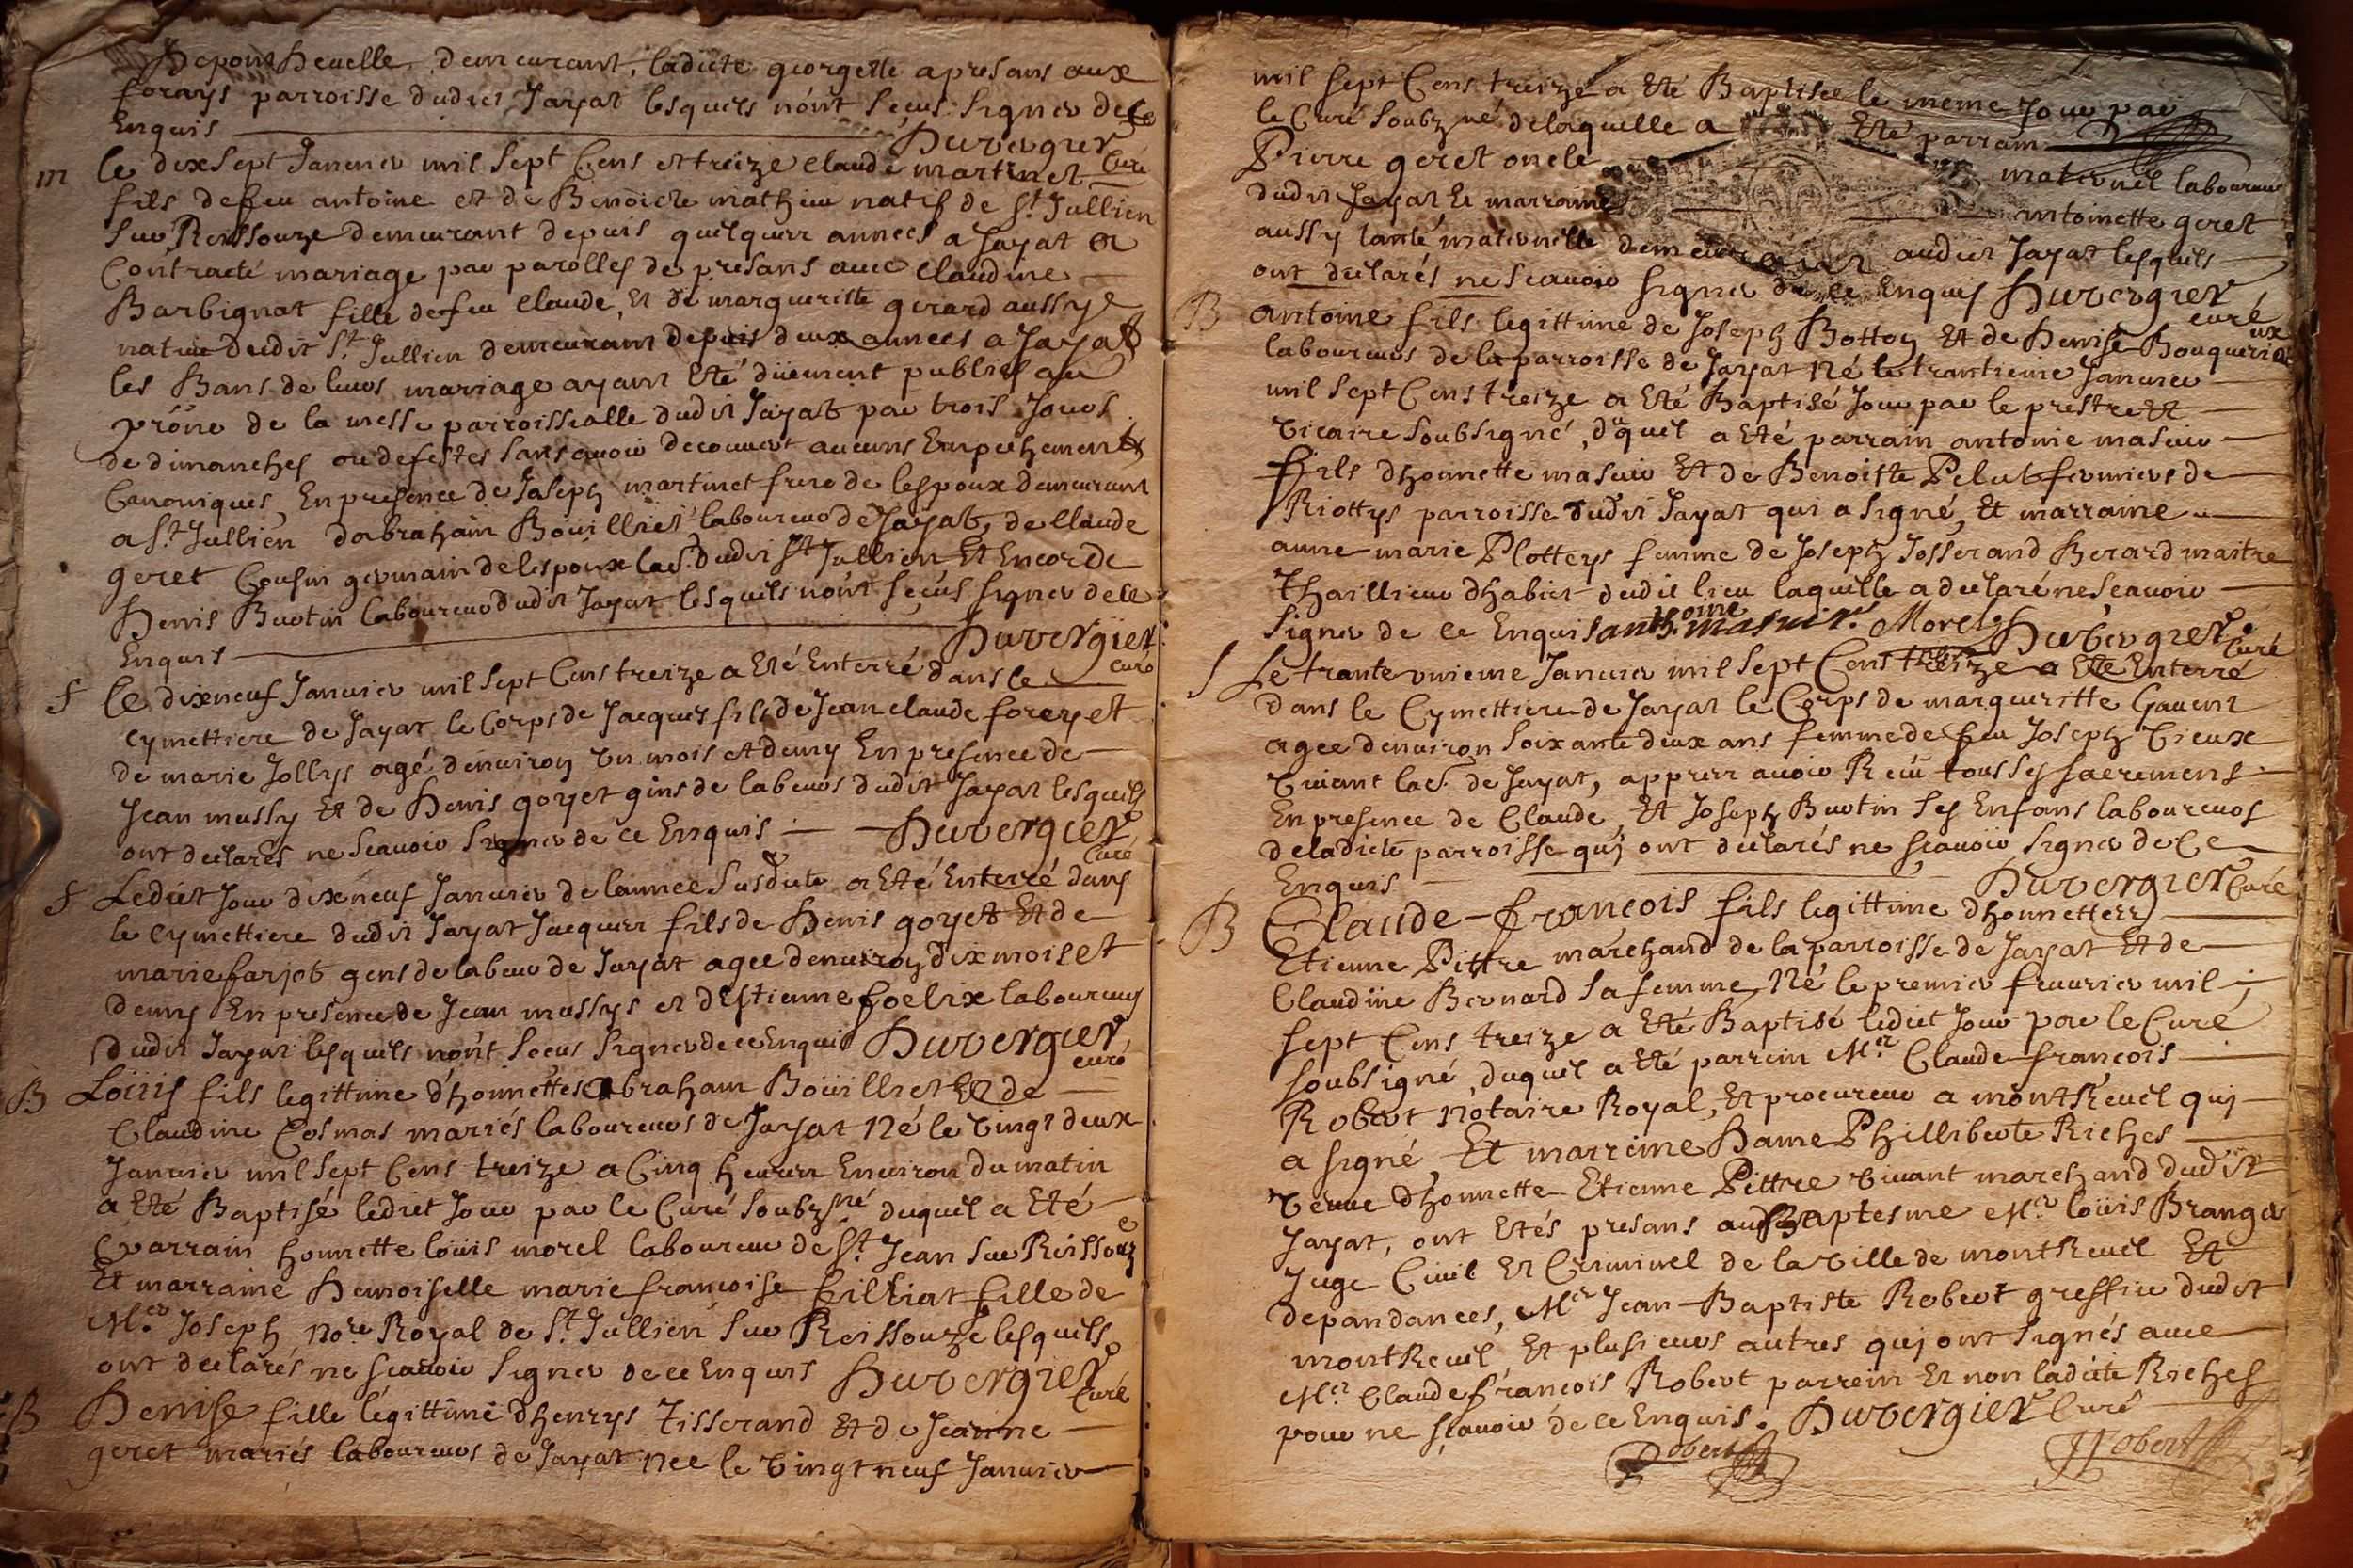 Deponthevelle, demeurant, ladicte georgette apresans aux
forays parroisse dudict Jayat lesquels nont sceus signer de ce
Enquis Duvergier
m le dix sept Janvier mil sept Cens et treize claude martinet Curé
fils de feu antoine et de Benoicte mathieu natif de St Jullien
sur Reissouze demeurant depuis quelques annees a Jayat a
Contracté mariage par parolles de presans avec claudine
Barbignat fille de feu claude, et de margueritte girard aussy
native dudit St Jullien demeurant depuis deux annees a Jayat
les Bans de leurs mariage ayant Eté düement publies au
prône de la messe parroissialle dudit Jayat par trois Jours
de dimanches ou de festes sans avoir decouvert aucuns Empechements
Canoniques, En presence de Joseph martinet frere de lespoux demeurant
a St Jullien dabraham Boüillier laboureur de Jayat, de claude
geret Cousin germain de lespoux lab. dudit St Jullien Et Encor de
Denis Buotin laboureur dudit Jayat lesquels nont sceus signer de ce
Enquis Duvergier
curé
S le dixneuf Janvier mil sept Cens treize a Eté Enterré dans le
cymettiere de Jayat le Corps de Jacques fils de Jean claude forey et
de marie Jollys agé denviron un mois et demy En presence de
Jean mussy Et de Denis goyet gens de labeurs dudit Jayat lesquels
ont declarés ne Scavoir Signer de ce Enquis Duvergier
Curé
S Ledict Jour dixneuf Janvier de lannee susdicte a Eté Enterré dans
le cymettiere dudit Jayat Jacques fils de Denis goyet Et de
marie farjot gens de labeur de Jayat agee denviron dix mois et
demy En presence de Jean mussys et dEstienne foelix laboureurs
dudit Jayat lesquels nont sceus signer de ce Enquis Duvergier
curé
B Loüis fils legittime d'honnettes Abraham Boüillier Et de
Claudine Cosmas mariés laboureurs de Jayat Né le vingt deux
Janvier mil sept Cens treize a Cinq heures Environ du matin
a Eté Baptisé ledict Jour par le Curé soubzné duquel a Eté
parrain honnette loüis morel laboureur de St Jean sur Reissouze
Et marraine Demoiselle marie francoise fille de
Mer Joseph Nore Royal de St Jullien sur Reissouze lesquels
ont declarés ne scavoir signer de ce Enquis Duvergier
Curé
B Denise fille legittime dhenrys Tisserand Et de Jeanne
geret mariés laboureurs de Jayat Nee le vingt neuf Janvier
mil sept Cens treize a Eté Baptisee le meme Jour par
le Curé Soubzné delaquelle a Eté parrain
Pierre geret oncle maternel laboureur
dudit Jayat Et marraine antoinette geret
aussy tante maternelle demeurant audict Jayat lesquels
ont declarés ne scavoir signer de ce Enquis Duvergier
curé
B antoine fils legittime de Joseph Botton Et de Denise Bouquerieux
laboureurs de la parroisse de Jayat Né le trantieme Janvier
mil sept Cens treize a Eté Baptisé Jour par le prestre Et
vicaire soubsigné, duquel a Eté parrain antoine masuir
fils dhonnette masuir Et de Benoitte Pelut fermiers de
Riottys parroisse dudit Jayat qui a signé, Et marraine
anne marie Plotteys femme de Joseph Josserand Berard maitre
Thaillieur dhabict dudit lieu laquelle a declaré ne Scavoir
signer de ce Enquis anthoine masuir. Morel Duvergier
Curé
S Le trante unieme Janvier mil sept Cens treize a Eté Enterré
dans le Cymettiere de Jayat le Corps de margueritte Gavent
agee denviron soixante deux ans femme de feu Joseph
vivant lab. de Jayat, appres avoir Receü tous les sacremens
En presence de Claude, Et Joseph Buotin ses Enfans laboureurs
deladicte parroisse quj ont declarés ne scavoir signer de Ce
Enquis Duvergier Curé
B Claude-François fils legittime dhonnettes
Etienne Pittre marchand de la parroisse de Jayat Et de
Claudine Bernard sa femme, Né le premier fevrier mil
sept Cens treize a Eté Baptisé ledict Jour par le Curé
soubsigné, duquel a Eté parrein Mer Claude françois
Robert Notaire Royal, Et procureur a montRevel quj
a signé, Et marreine Dame Philliberte Riches
veuve dhonnette Etienne Pittre vivant marchand dudit
Jayat, ont Etés presans audt Baptesme Mer loüis Branger
Juge Civil Et Criminel de la ville de montRevel Et
dependances, Mer Jean-Baptiste Robert greffier dudit
montRevel, Et plusieurs autres quj ont signés avec
Mer Claude françois Robert parrein Et non ladicte Riches
pour ne scavoir de ce Enquis. Duvergier Curé
Robert JRobert